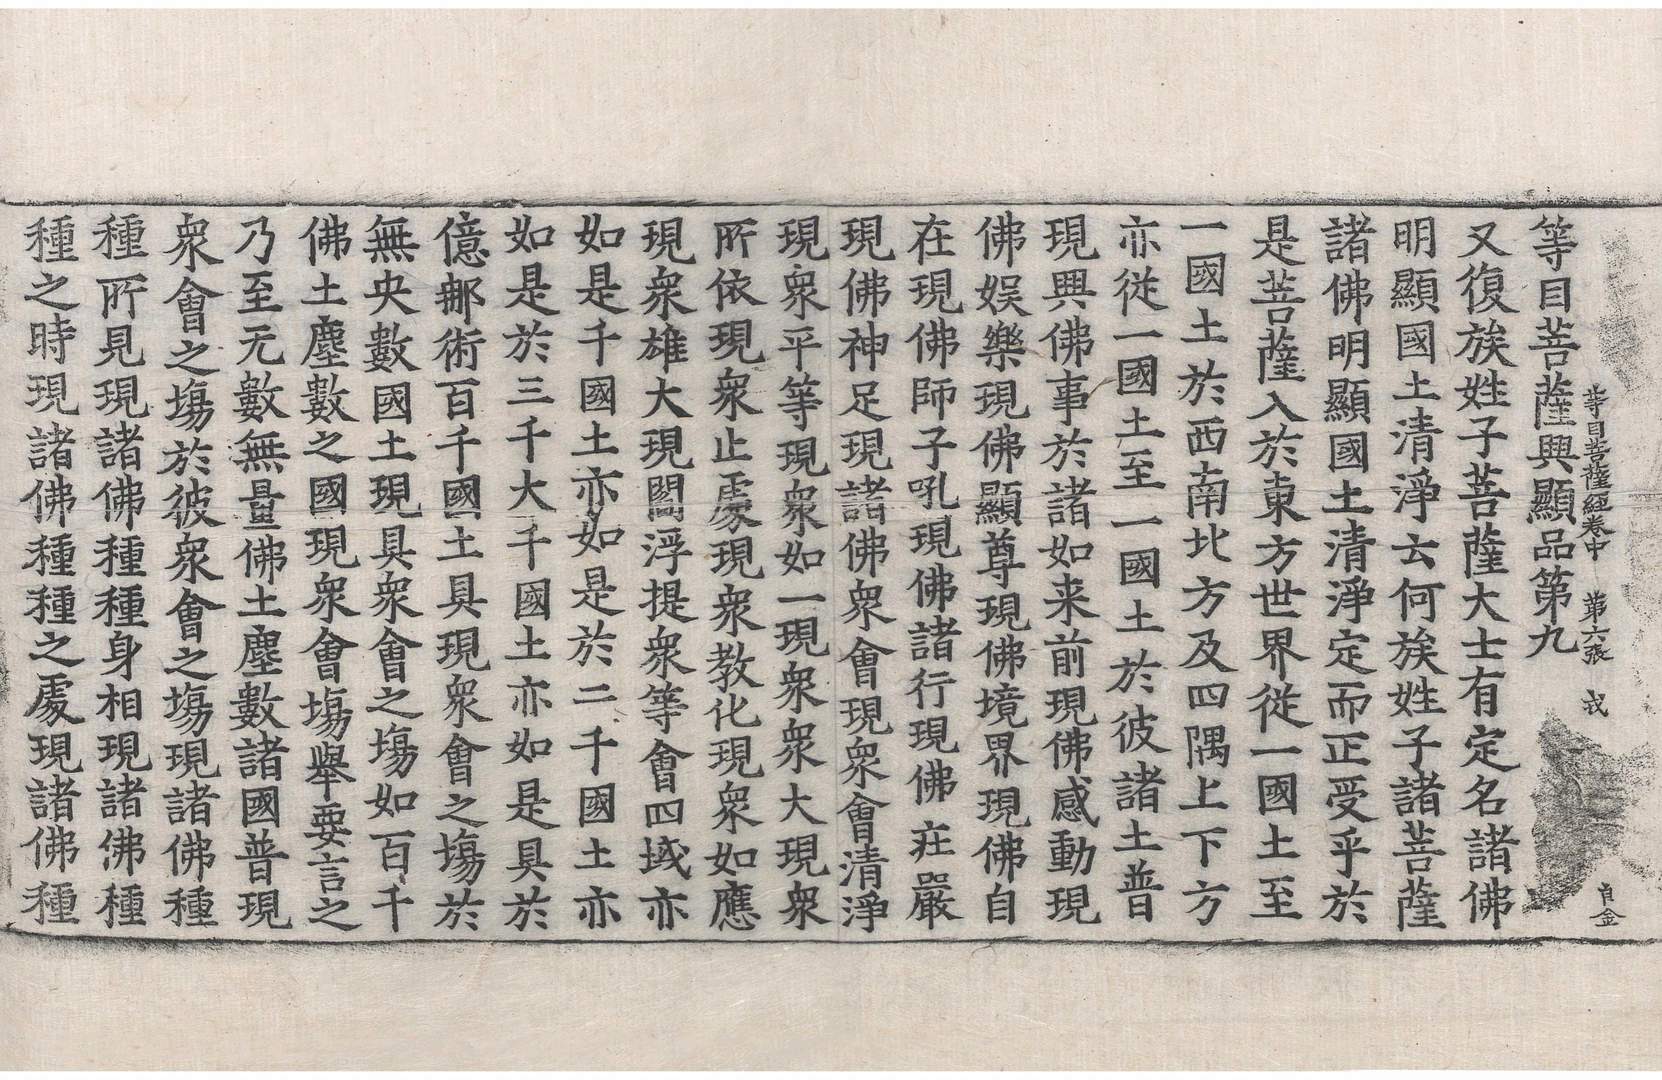 等目菩薩經卷中　第六張　戎　自金
等目菩薩興顯品第九
又復族姓子菩薩大士有定名諸佛
明顯國土清淨云何族姓子諸菩薩
諸佛明顯國土清淨定而正受乎於
是菩薩入於東方世界從一國土至
一國土於西南北方及四隅上下方
亦從一國土至一國土於彼諸土普
現興佛事於諸如来前現佛感動現
佛娛樂現佛顯尊現佛境界現佛自
在現佛師子吼現佛諸行現佛莊嚴
現佛神足現諸佛衆會現衆會清淨
現衆平等現衆如一現衆衆大現衆
所依現衆止處現衆教化現衆如應
現衆雄大現閻浮提衆等會四域亦
如是千國土亦如是於二千國土亦
如是於三千大千國土亦如是具於
億那術百千國土具現衆會之場於
無央數國土現具衆會之場如百千
佛土塵數之國現衆會場舉要言之
乃至无數無量佛土塵數諸國普現
衆會之場於彼衆會之場現諸佛種
種所見現諸佛種種身相現諸佛種
種之時現諸佛種種之處現諸佛種